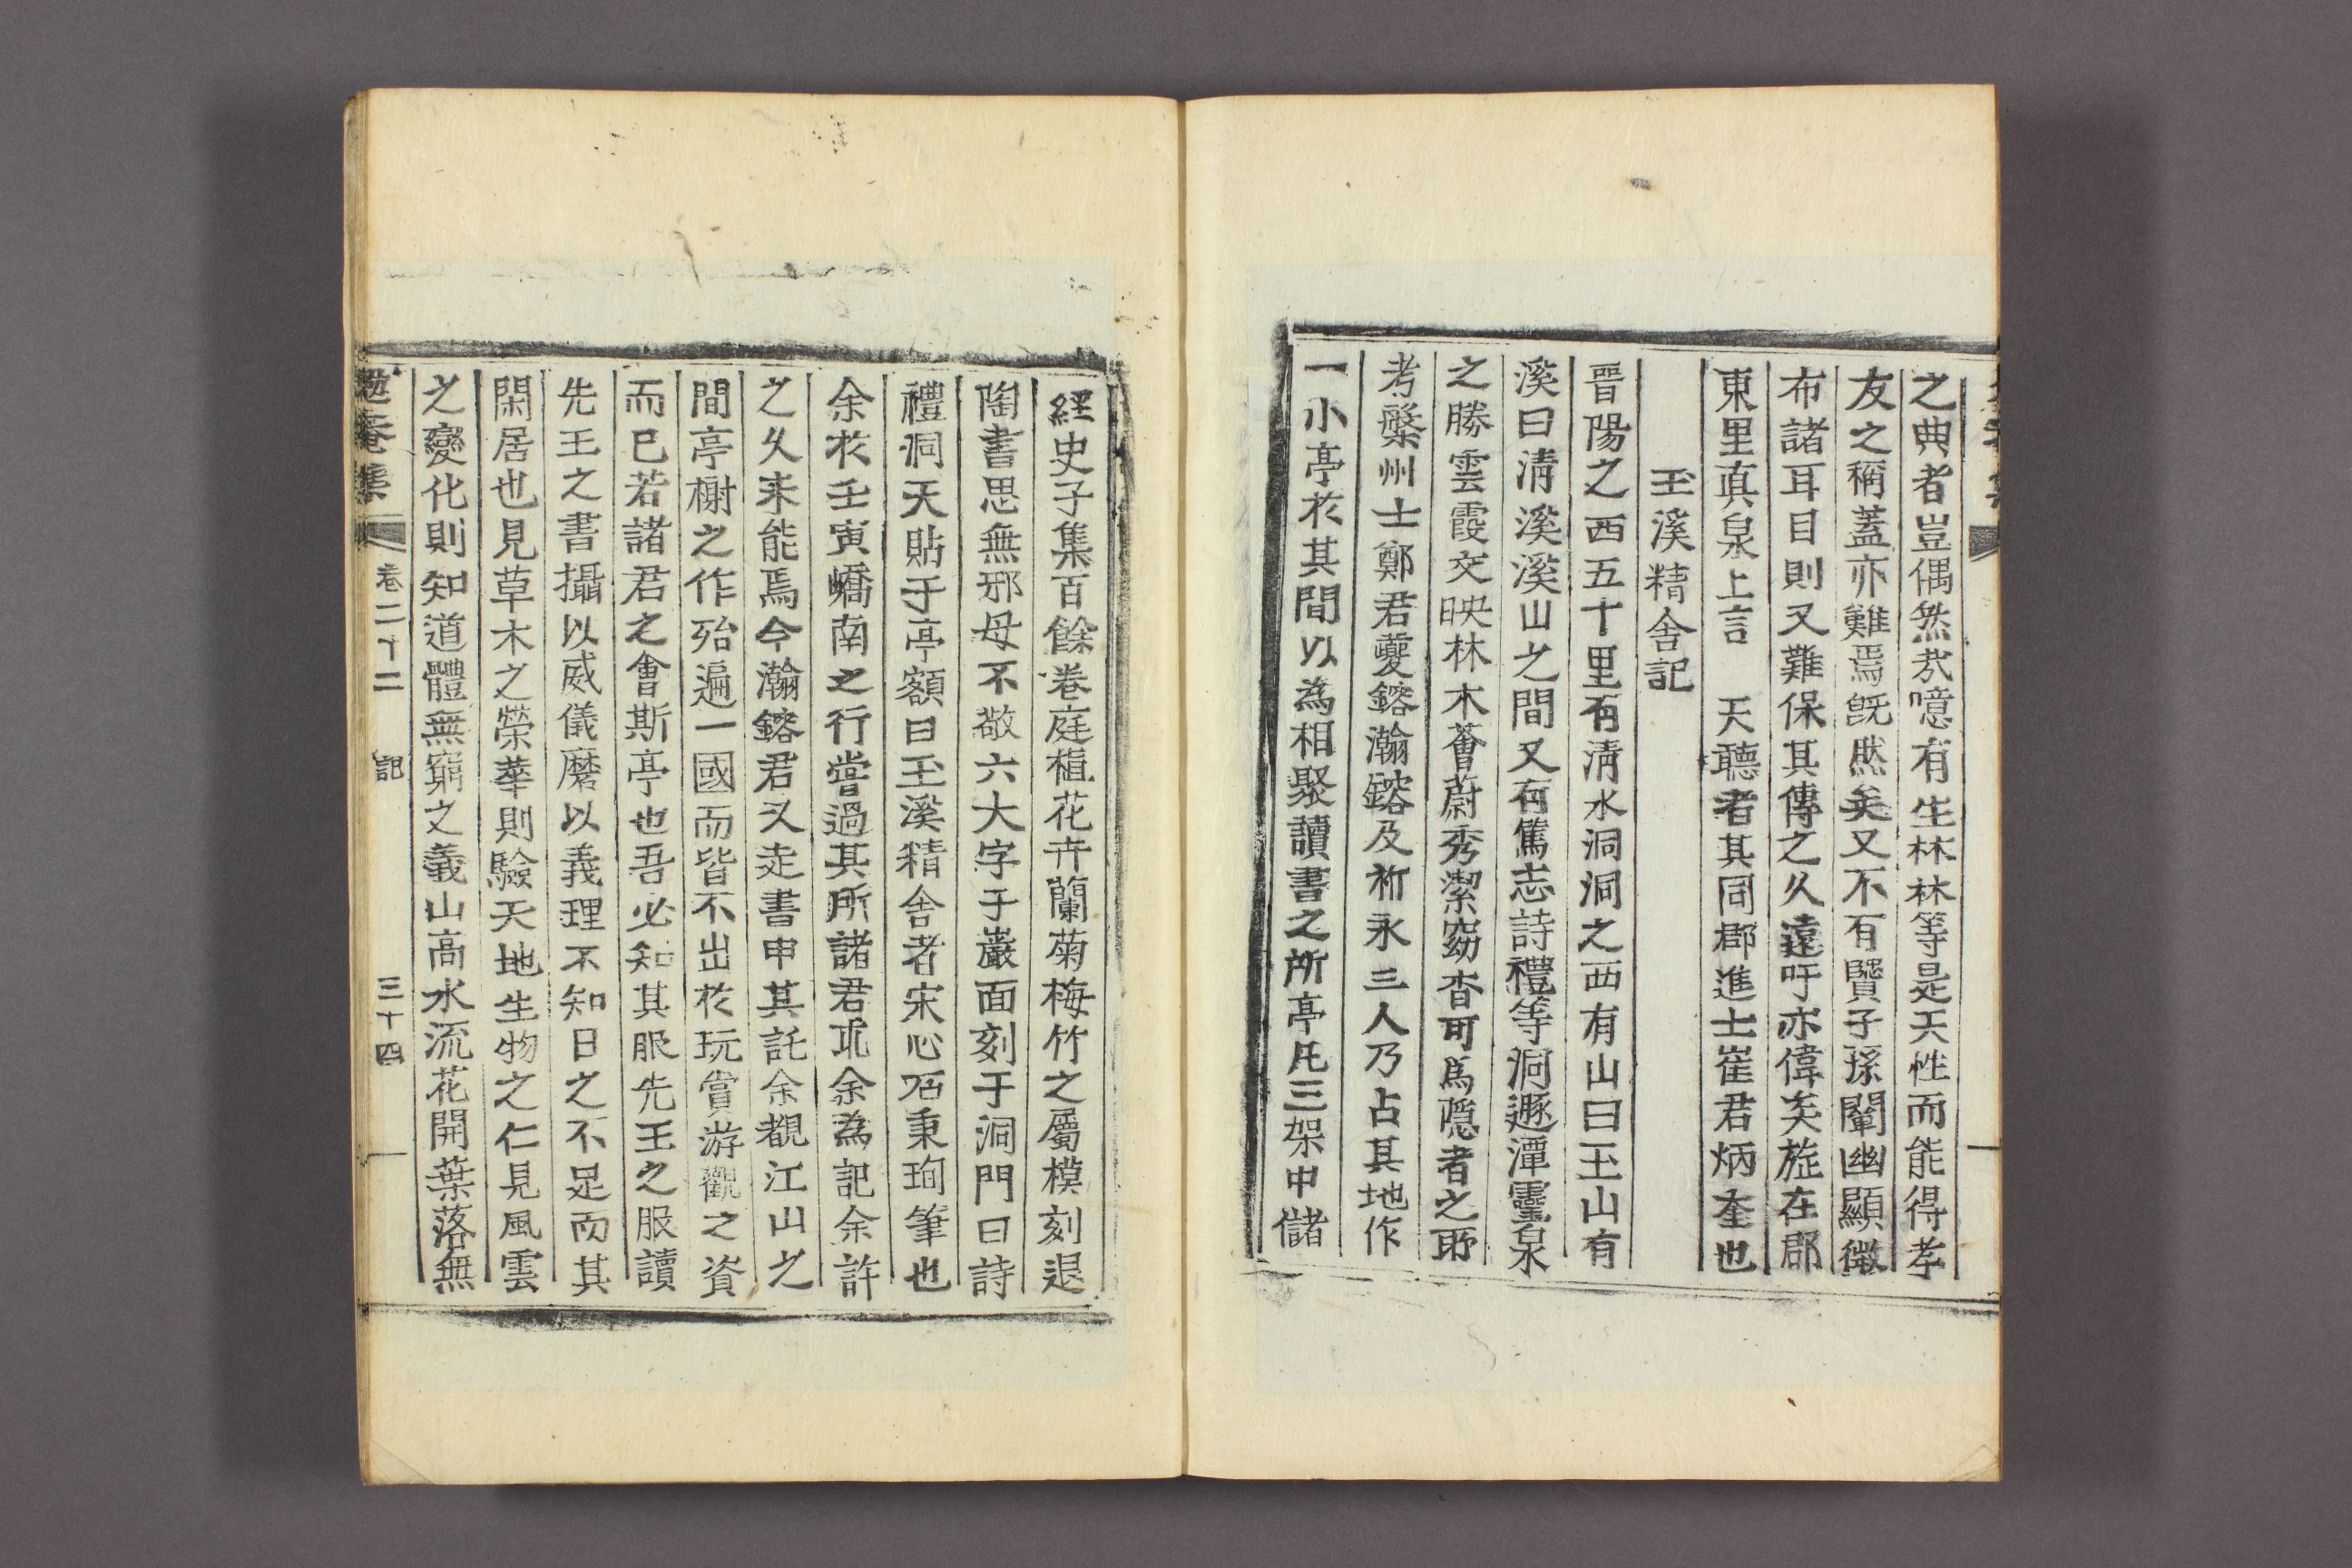 之典者豈偶然㢤噫有生林林等是天性而能得孝
友之稱蓋亦難焉旣然矣又不有賢子孫闡幽顯微
布諸耳目則又難保其傳之久遠吁亦偉矣旋在郡
東里眞泉上言　天聽者其同郡進士崔君炳奎也
玉溪精舍記
晋陽之西五十里有淸水洞洞之西有山曰玉山有
溪曰淸溪溪山之間又有篤志詩禮等洞遯潭靈泉
之勝雲霞交映林木薈蔚秀潔窈杳可爲隱者之所
考槃州士鄭君虁鎔瀚鎔及祈永三人乃占其地作
一小亭於其間以爲相聚讀書之所亭凡三架中儲
經史子集百餘卷庭植花卉蘭菊梅竹之屬模刻退
陶書思無邪毋不敬六大字于巖面刻于洞門曰詩
禮洞天貼于亭額曰玉溪精舍者宋心石秉珣筆也
余於壬寅嶠南之行嘗過其所諸君求余為記余許
之久未能焉今瀚鎔君又走書申其託余覩江山之
間亭榭之作殆遍一國而皆不出於玩賞游觀之資
而已若諸君之會斯亭也吾必知其服先王之服讀
先王之書攝以威儀磨以義理不知日之不足而其
閑居也見草木之榮華則驗天地生物之仁見風雲
之變化則知道體無窮之義山高水流花開葉落無
卷二十二　記　三十四